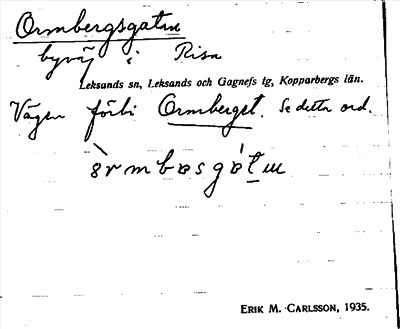 Ormbergsgatu
byväg i Risa
Leksands sn, Leksands och Gagnefs tg, Kopparbergs län.
Vägen förbi Ormberget. Se detta ord.
ERIK M. CARLSSON, 1935.